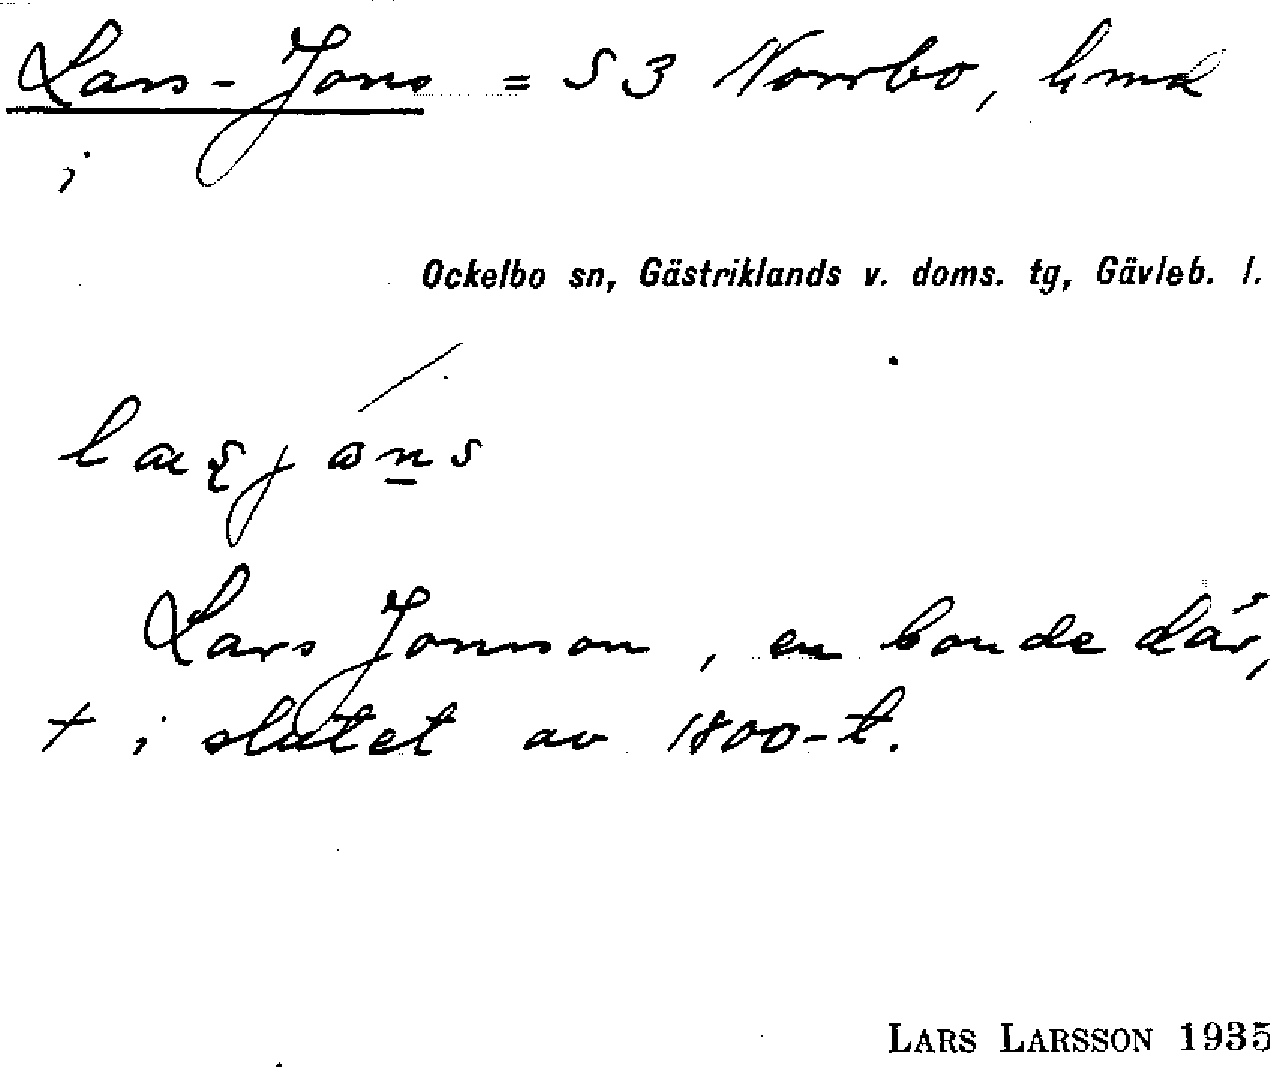 Lars-Jons = S 3 Norrbo, hmd
i
Ockelbo sn, Gästriklands v. doms. tg, Gävleb. l.
Lars Jonsson, en bonde där,
† i slutet av 1800-t.
LARS LARSSON 1935